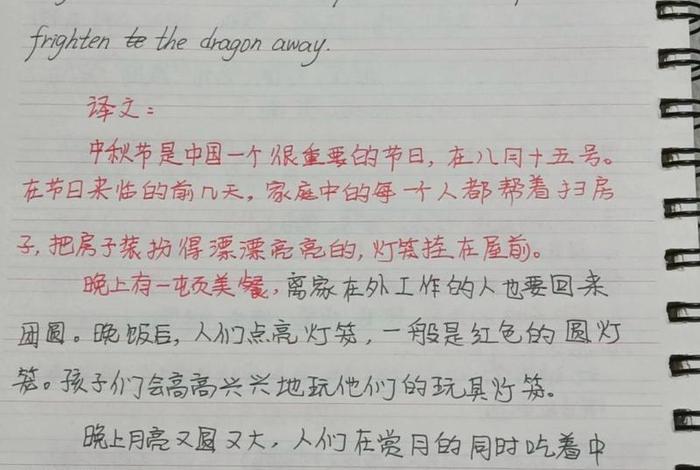 frighten te the dragon away.
译文：
中秋节是中国一个很重要的节日，在八月十五号。
在节日来临的前几天，家庭中的每一个人都帮着扫房
子，把房子装扮得漂漂亮亮的，灯笼挂在屋前。
晚上有一顿美餐，离家在外工作的人也要回来
团圆。晚饭后，人们点亮灯笼，一般是红色的圆灯
笼。孩子们会高高兴兴地玩他们的玩具灯笼。
晚上月亮又圆又大，人们在赏月的同时吃着中